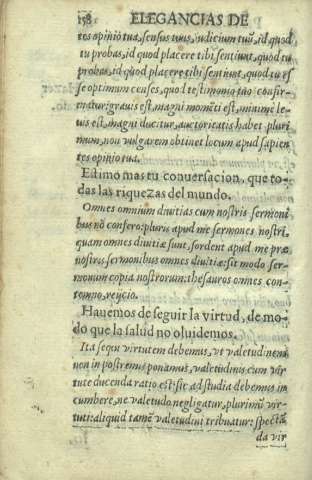 158. ELEGANCIAS DE
tes opinio tua, sensus tuus, iudicium tuũ, id quod
tu probas, id quod placere tibi sentiunt, quod tu
probas, id quod placere tibi sentiunt, quod tu es
se optimum censes, quod testimonio tuo confir-
natur: gravis est, magni momẽti est, minimè le-
uis est, magni ducitur, auctoritatis habet pluri
mum, non vulgarem obtinet locum apud sapien
tes opinio tua.
Estimo mas tu conuersacion, que to-
das las riquezas del mundo.
Omnes omnium diuitias cum nostris sermoni
bus nõ confero: pluris apud me sermones nostri,
quam omnes diuitiæ sunt, sordent apud me præ
nostris sermonibus omnes diuitiæ: sit modo ser-
monum copia nostrorum: thesauros omnes con-
temno, reycio.
Hauemos de seguir la virtud, de mo-
do que la salud no oluidemos.
Ita sequi virtutem debemus, vt valetudinem
non in postremis ponamus, valetudinis cum vir
tute ducenda ratio est: sic ad studia debemus in
cumbere, ne valetudo negligatur, plurimũ vir-
tuti: aliquid tamẽ valetudini tribuatur: spectã
da vir